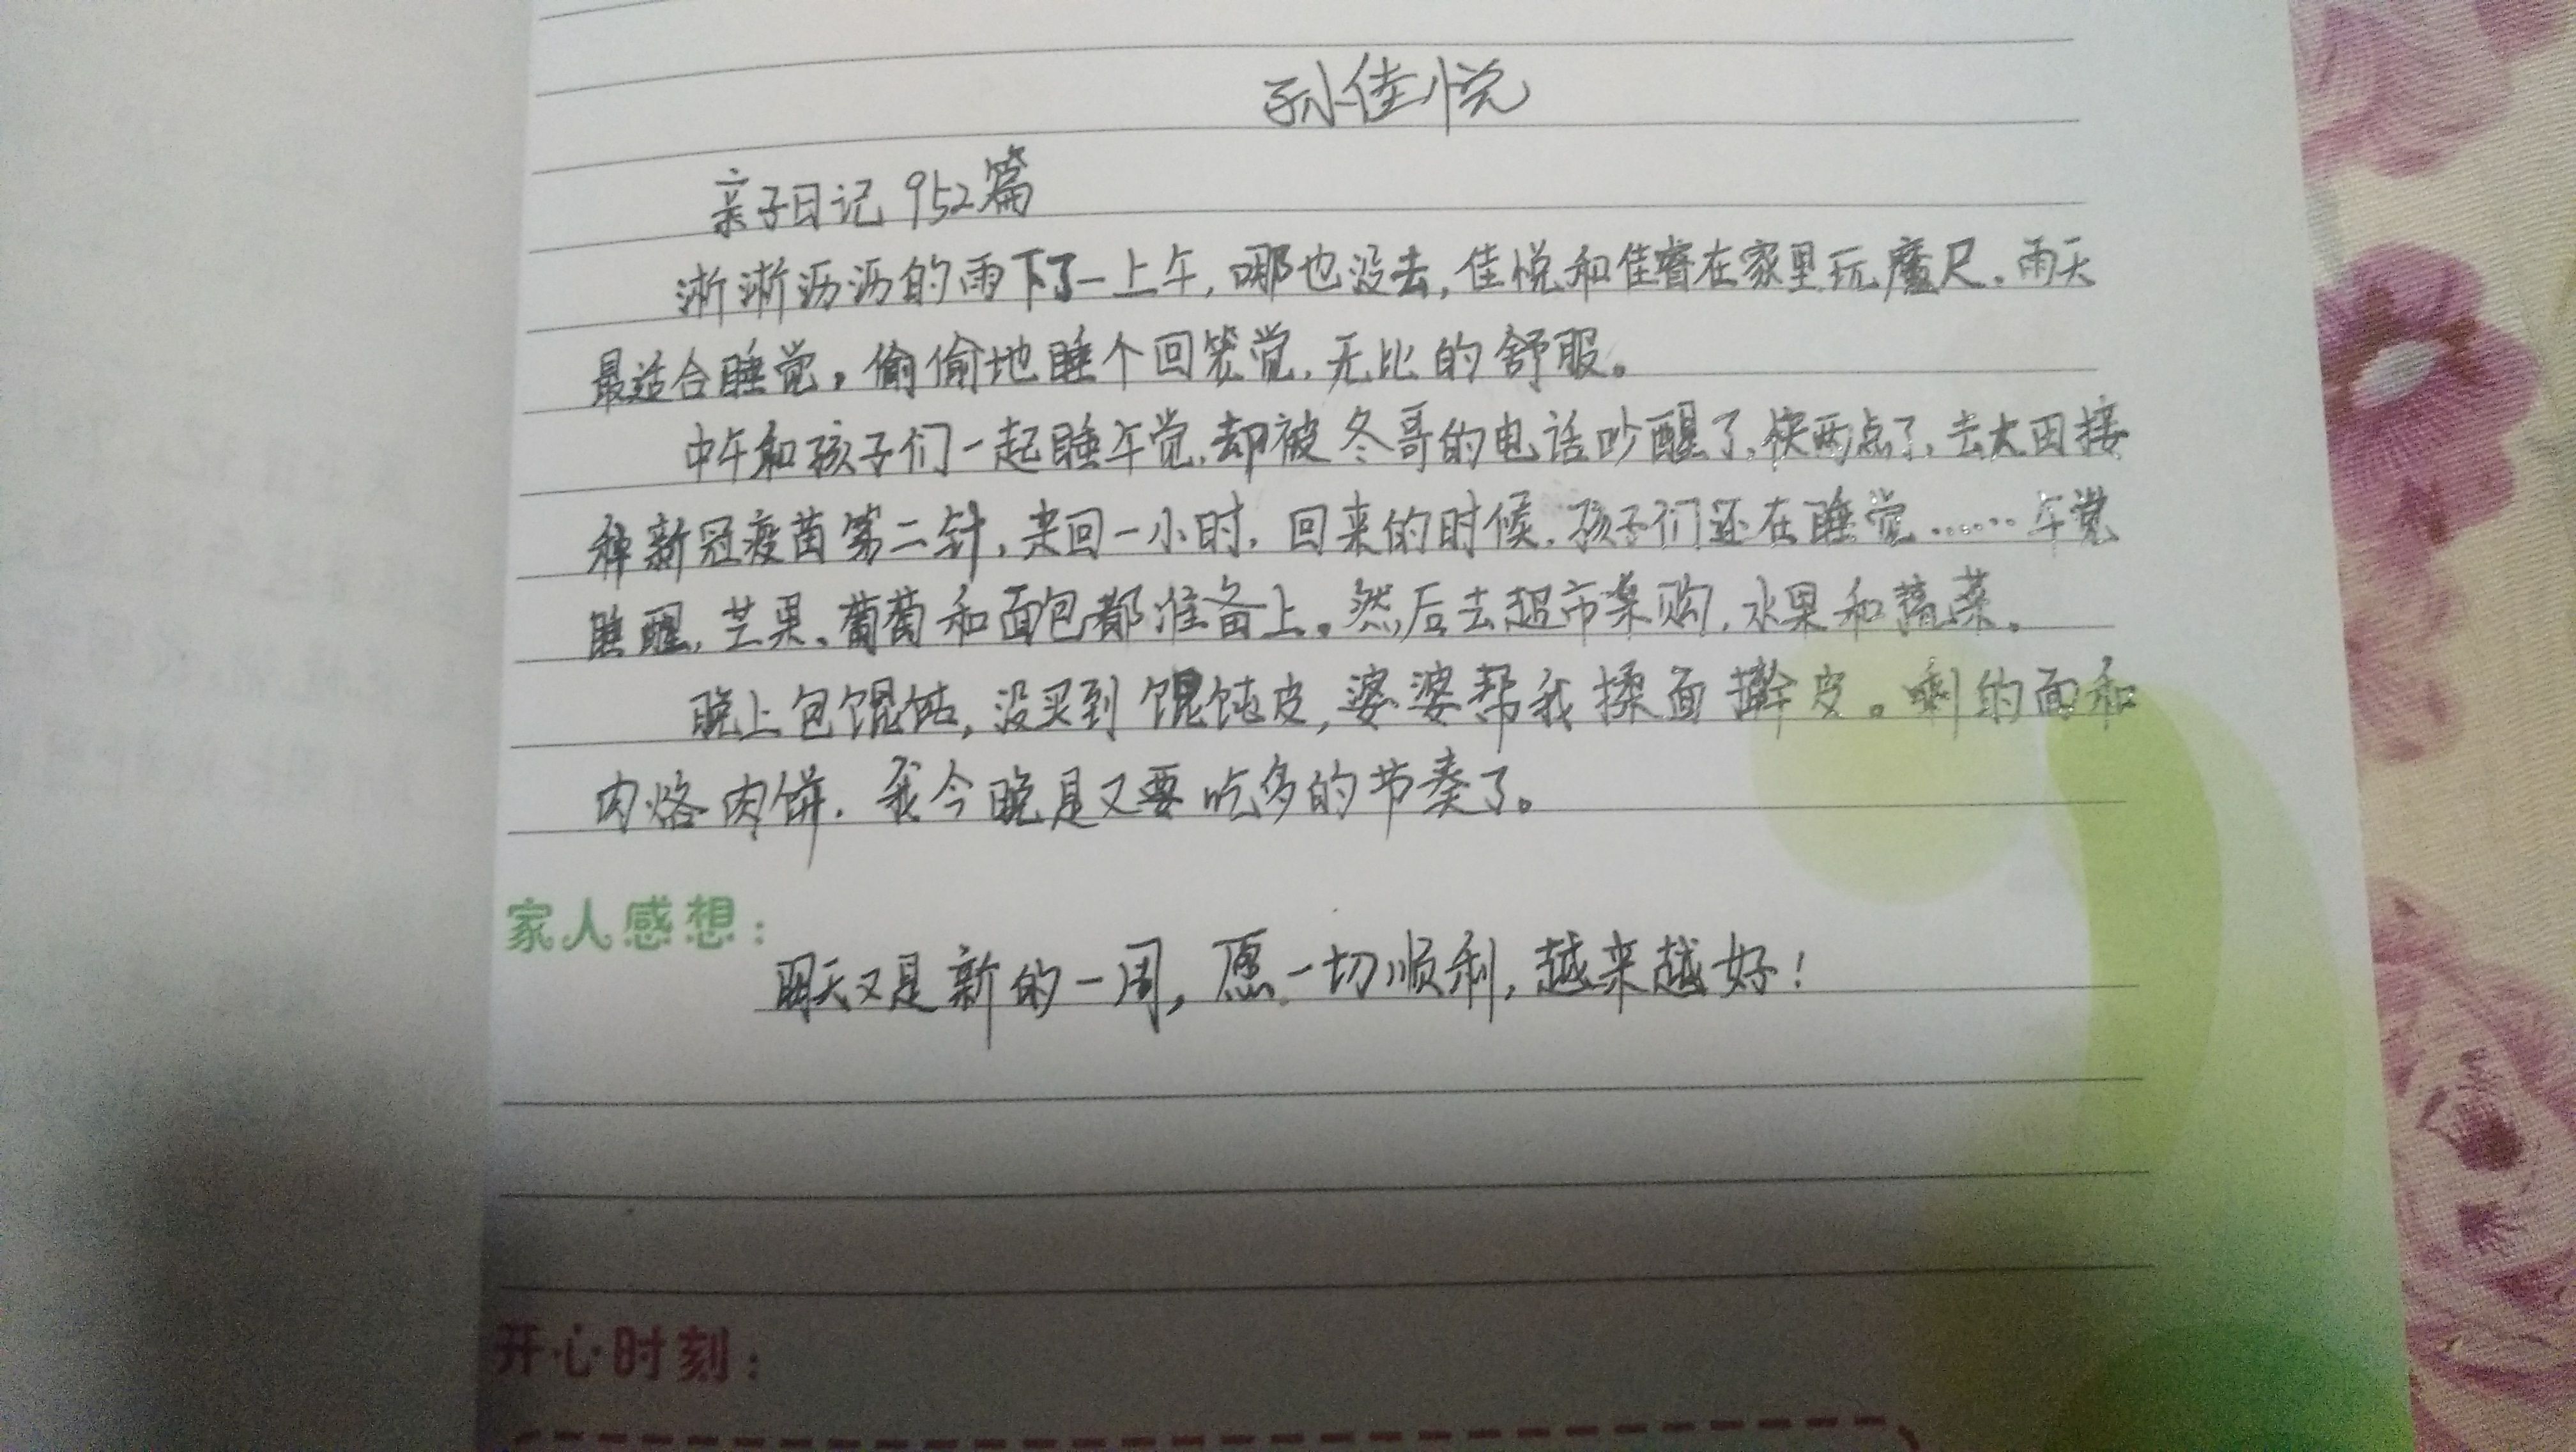 孙佳悦
亲子日记 952篇
淅淅沥沥的雨下了一上午,哪也没去,佳悦和佳睿在家里玩魔尺。雨天
最适合睡觉,偷偷地睡个回笼觉,无比的舒服。
中午和孩子们一起睡午觉,却被冬哥的电话吵醒了,快两点了,去大田接
种新冠疫苗第二针,来回一小时,回来的时候,孩子们还在睡觉……午觉
睡醒,芒果、葡萄和面包都准备上。然后去超市采购,水果和蔬菜。
晚上包馄饨,没买到馄饨皮,婆婆帮我揉面擀皮。剩的面和
肉烙肉饼,我今晚是又要吃多的节奏了。
家人感想:
明天又是新的一周,愿一切顺利,越来越好!
开心时刻: